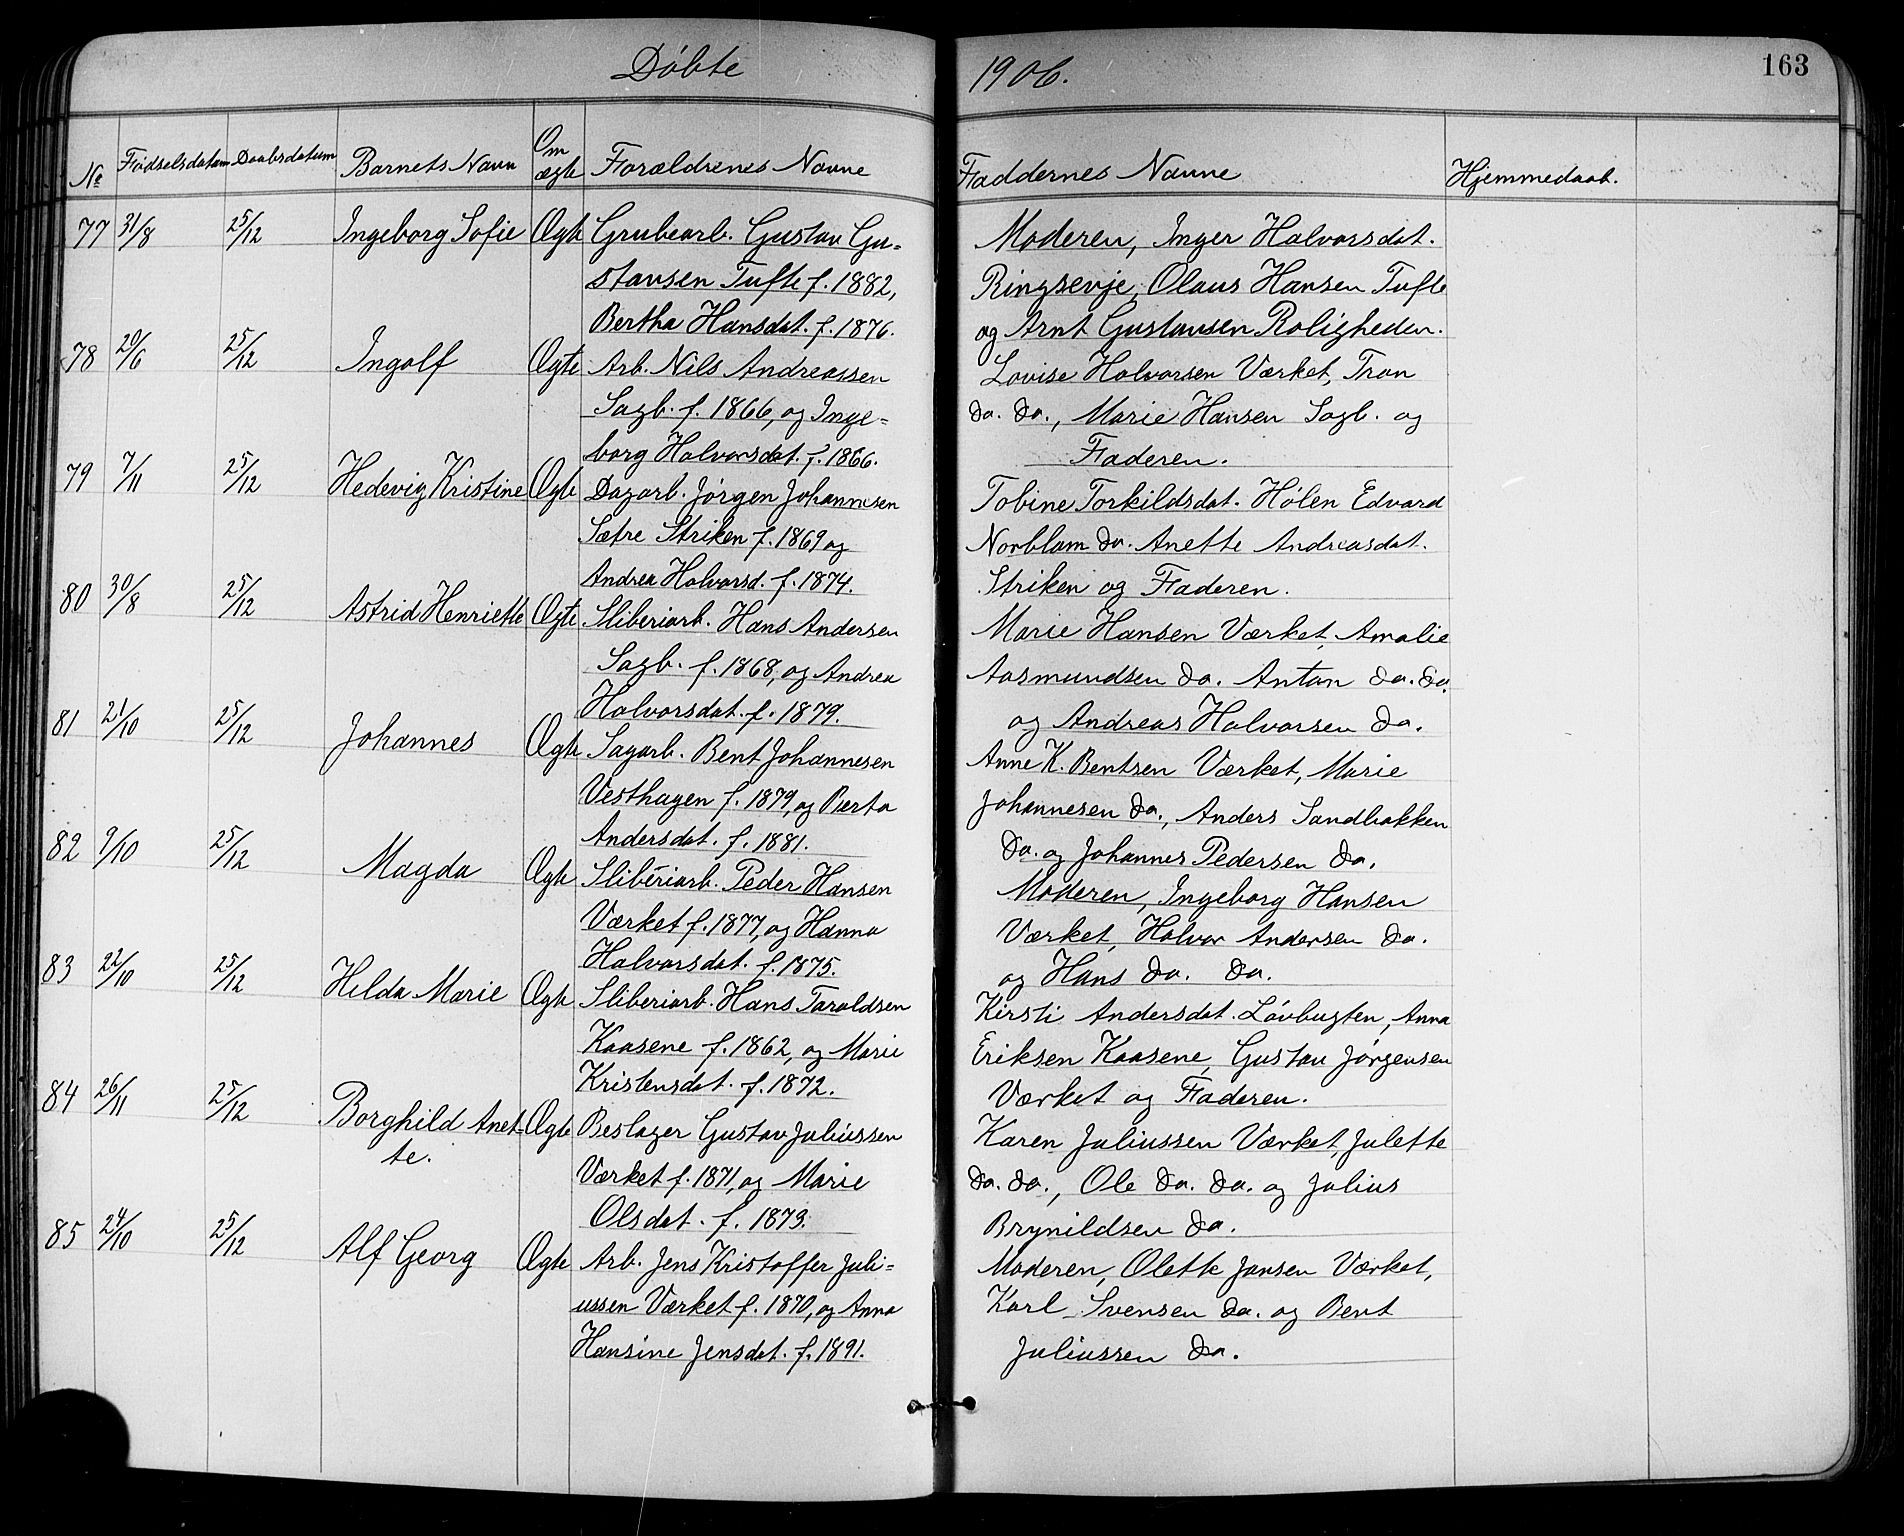 Döbte 1906. 163
№ Fødselsdatum Daabsdatum Barnets Navn Om ægte Forældrenes Navne Faddernes Navne Hjemmedaab.
77 31/8 25/12 Ingeborg Sofie Ægte Grubearb. Gustav Gu=
stavsen Tufte f. 1882,
Bertha Hansdat. f. 1876.
Moderen, Inger Halvorsdat.
Ringsevje, Olaus Hansen Tufte
og Arnt Gustavsen Roligheden.
78 20/6 25/12 Ingolf Ægte Arb. Nils Andreassen
Sagb. f. 1866, og Inge=
borg Halvorsdat. f. 1866.
Lovise Halvorsen Værket, Tran
do. do., Marie Hansen Sagb. og
Faderen.
79 7/11 25/12 Hedevig Kristine Ægte Dagarb. Jörgen Johannesen
Sætre Striken f. 1869 og
Andrea Halvorsd. f. 1874.
Tobine Torkildsdat. Hölen Edvard
Norblom do. Anette Andreasdat.
Striken og Faderen.
80 30/8 25/12 Astrid Henriette Ægte Sliberiarb. Hans Andersen
Sagb. f. 1868, og Andrea
Halvorsdat. f. 1879.
Marie Hansen Værket, Amalie
Aasmundsen do. Anton do. do.
og Andreas Halvorsen do.
81 21/10 25/12 Johannes Ægte Sagarb. Bent Johannesen
Vesthagen f. 1879, og Berta
Andersdat. f. 1881.
Anne K. Bentsen Værket, Marie
Johannesen do., Anders Sandbakken
do. og Johannes Pedersen do.
82 9/10 25/12 Magda Ægte Sliberiarb. Peder Hansen
Værket f. 1877, og Hanna
Halvorsdat. f. 1875.
Moderen, Ingeborg Hansen
Værket, Halvor Andersen do.
og Hans do. do.
83 22/10 25/12 Hilda Marie Ægte Sliberiarb. Hans Taraldsen
Kaasene f. 1862, og Marie
Kristensdat. f. 1872.
Kirsti Andersdat. Lövbugten, Anna
Eriksen Kaasene, Gustav Jörgensen
Værket og Faderen.
84 26/11 25/12 Borghild Anet-
te.
Ægte Beslager Gustav Juliussen
Værket f. 1871, og Marie
Olsdat. f. 1873.
Karen Juliussen Værket, Julette
do. do., Ole do. do. og Julius
Brynildsen do.
85 24/10 25/12 Alf Georg Ægte Arb. Jens Kristoffer Juli=
ussen Værket f. 1870, og Anna
Hansine Jensdat. f. 1891.
Moderen, Olette Jansen Værket,
Karl Svensen do. og Bent
Juliussen do.